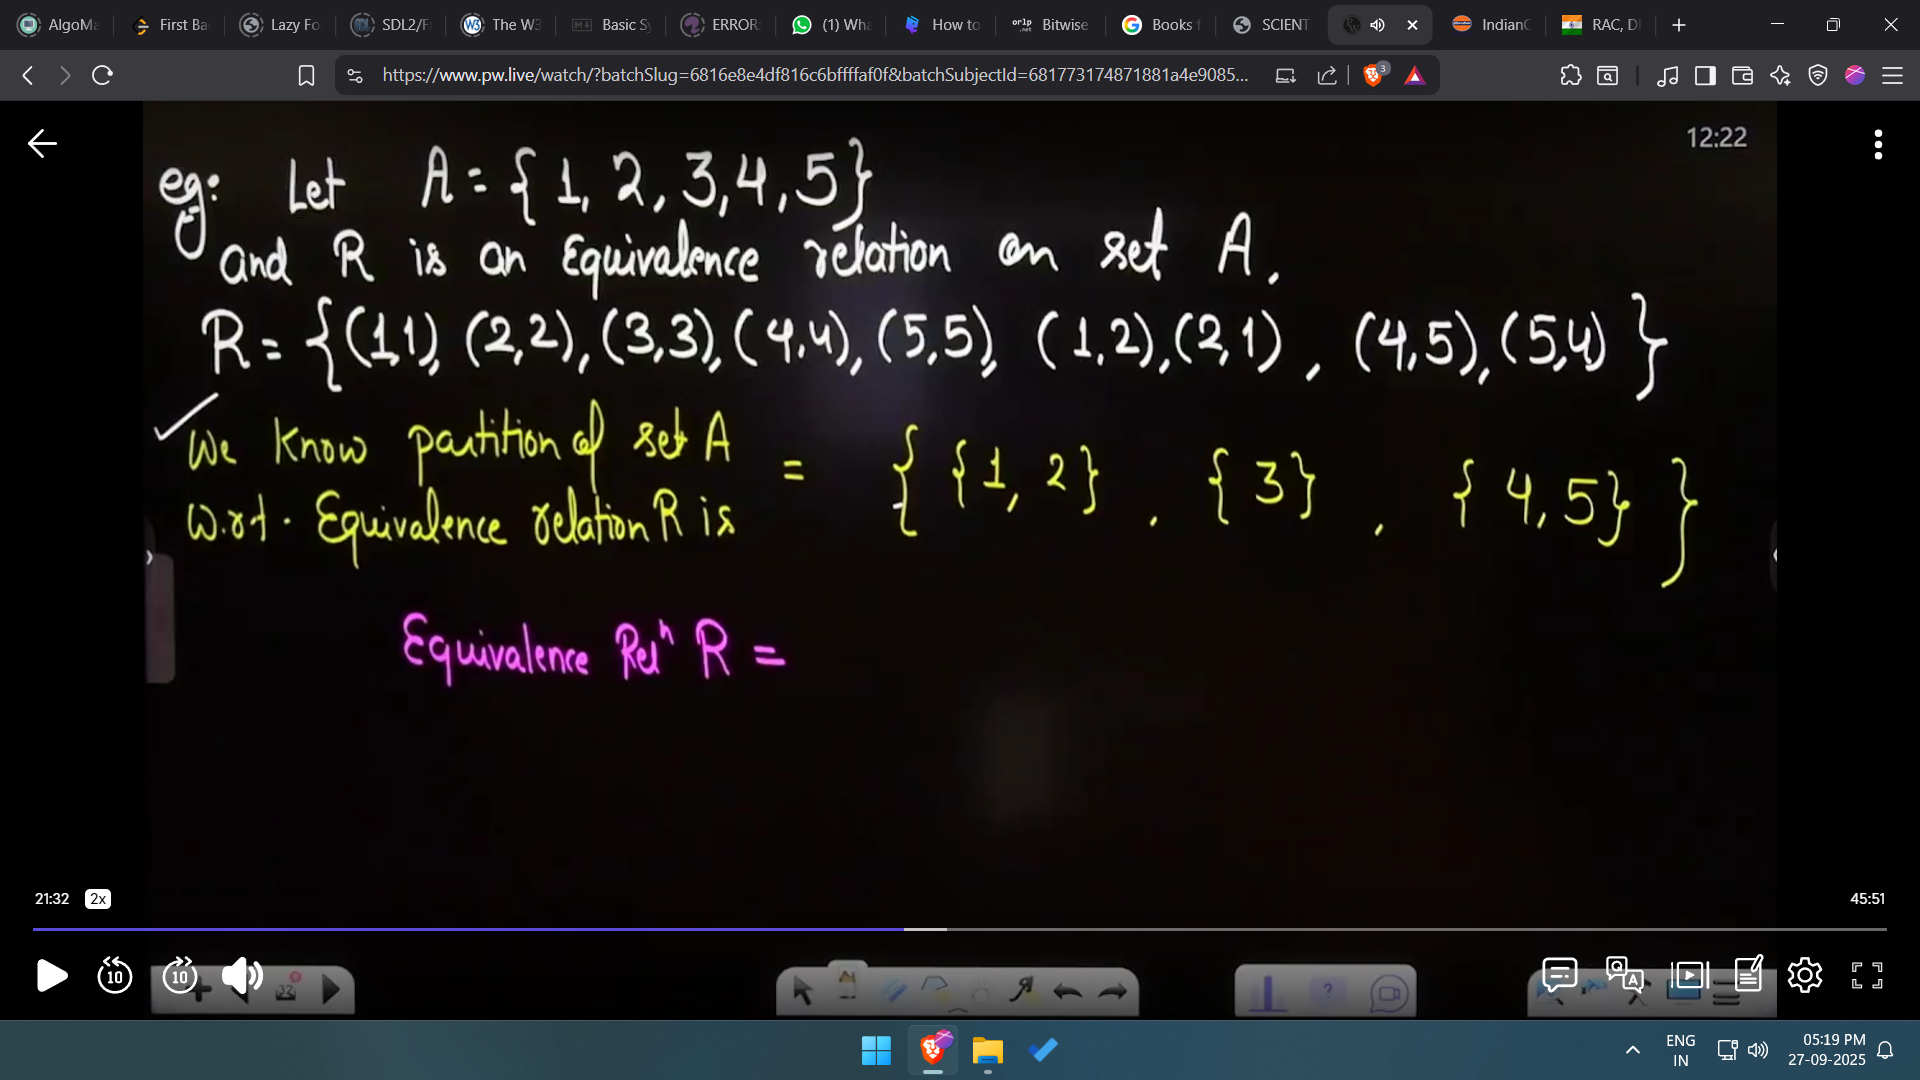 AlgoMa
First Ba
Lazy Fo
SDL2/F
The W3
Basic Sy
ERROR:
(1) Wha
How to
Bitwise
Books f
SCIENT
IndianC
RAC, D
https://www.pw.live/watch/?batchSlug=6816e8e4df816c6bffffaf0f&batchSubjectId=681773174871881a4e9085...
3
12:22
eg: Let A = { 1, 2, 3, 4, 5 }
and R is an Equivalence relation on set A.
R = { (1,1), (2,2), (3,3), (4,4), (5,5), (1,2), (2,1), (4,5), (5,4) }
We know partition of set A
w.r.t. Equivalence relation R is = { {1, 2}, {3}, {4, 5} }
Equivalence Relⁿ R =
21:32 2x
45:51
10
10
32
ENG
IN
05:19 PM
27-09-2025